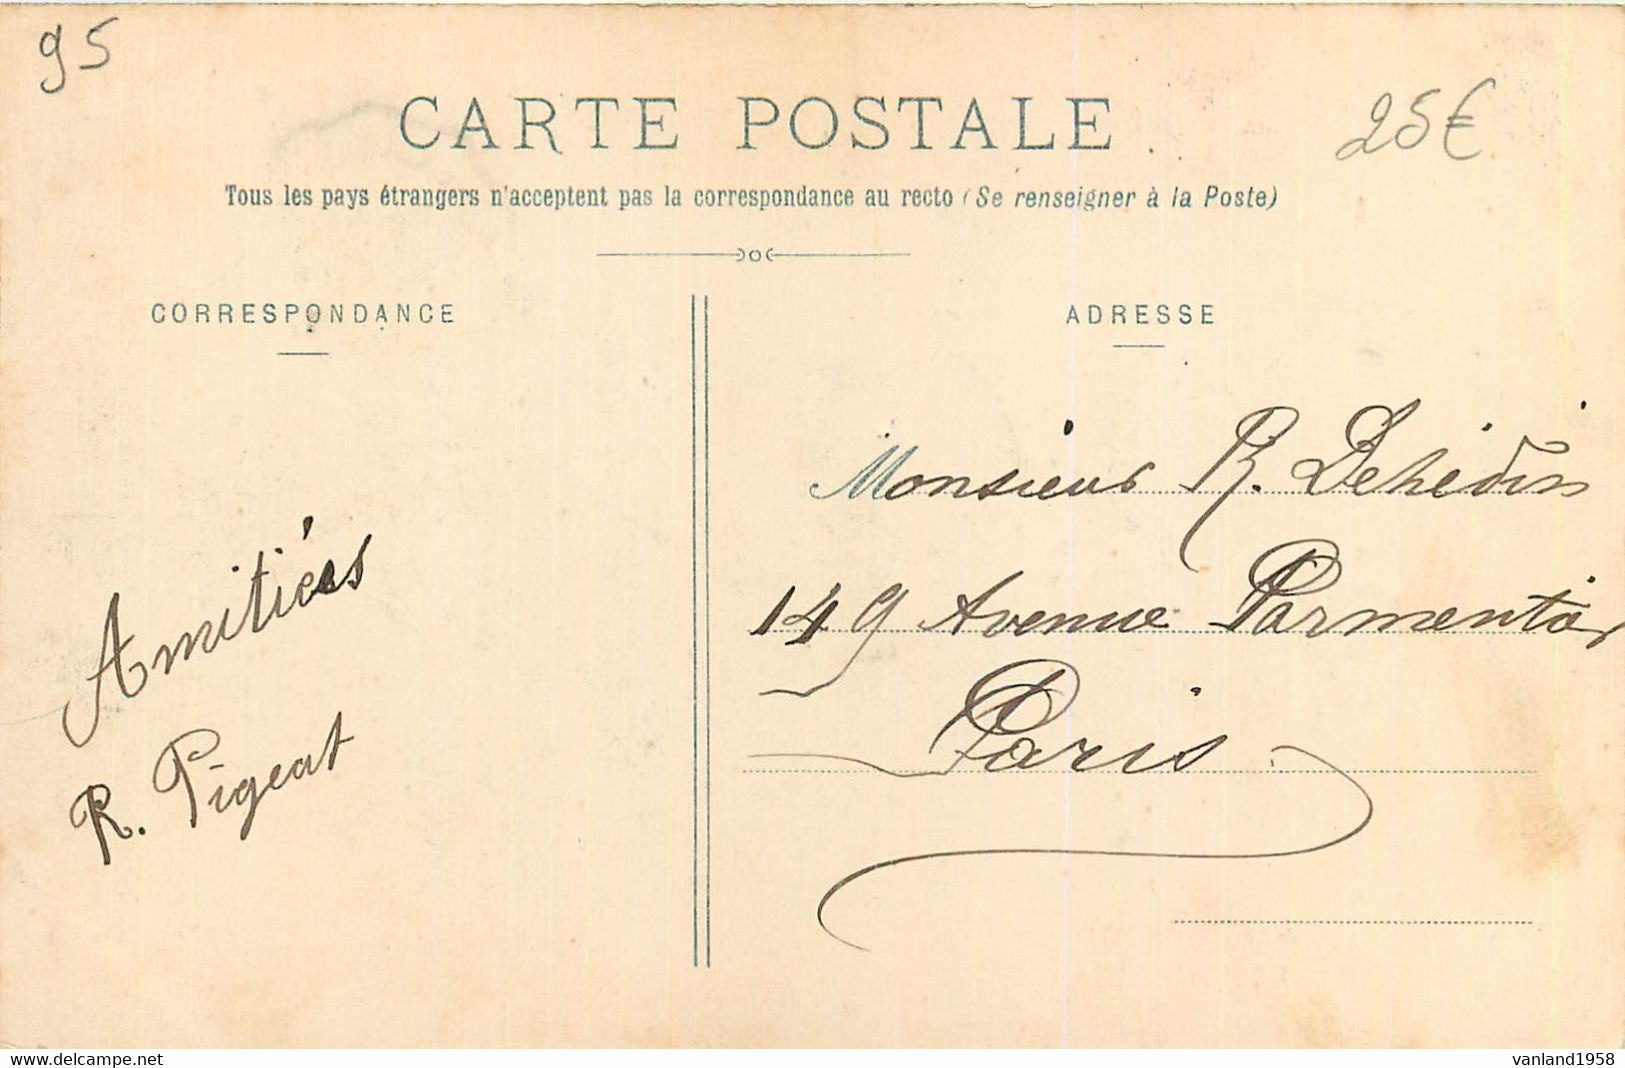 95
25€
CARTE POSTALE
Tous les pays étrangers n'acceptent pas la correspondance au recto (Se renseigner à la Poste)
CORRESPONDANCE
ADRESSE
Monsieur R. Dehédin
149 Avenue Parmentier
Paris
Amitiés
R. Pigeat
delcampe.net
vanland1958